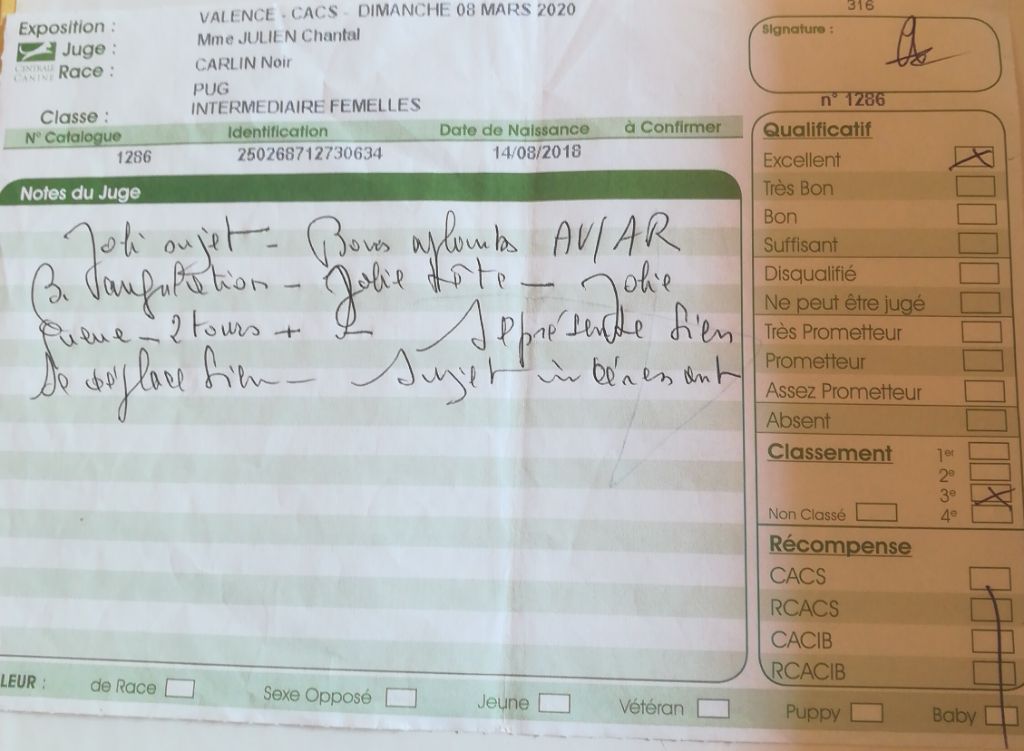 316
Exposition : VALENCE - CACS - DIMANCHE 08 MARS 2020
Juge : Mme JULIEN Chantal
CENTRALE CANINE
Race : CARLIN Noir
PUG
Classe : INTERMEDIAIRE FEMELLES
N° Catalogue Identification Date de Naissance à Confirmer
1286 250268712730634 14/08/2018
Notes du Juge
Joli sujet - Bons aplombs AV/AR
B. angulation - Jolie tête - Jolie
queue - 2 tours + - Se présente bien
Se déplace bien - Sujet intéressant
Signature :
n° 1286
Qualificatif
Excellent
Très Bon
Bon
Suffisant
Disqualifié
Ne peut être jugé
Très Prometteur
Prometteur
Assez Prometteur
Absent
Classement 1er
2e
3e
Non Classé 4e
Récompense
CACS
RCACS
CACIB
RCACIB
LEUR : de Race Sexe Opposé Jeune Vétéran Puppy Baby